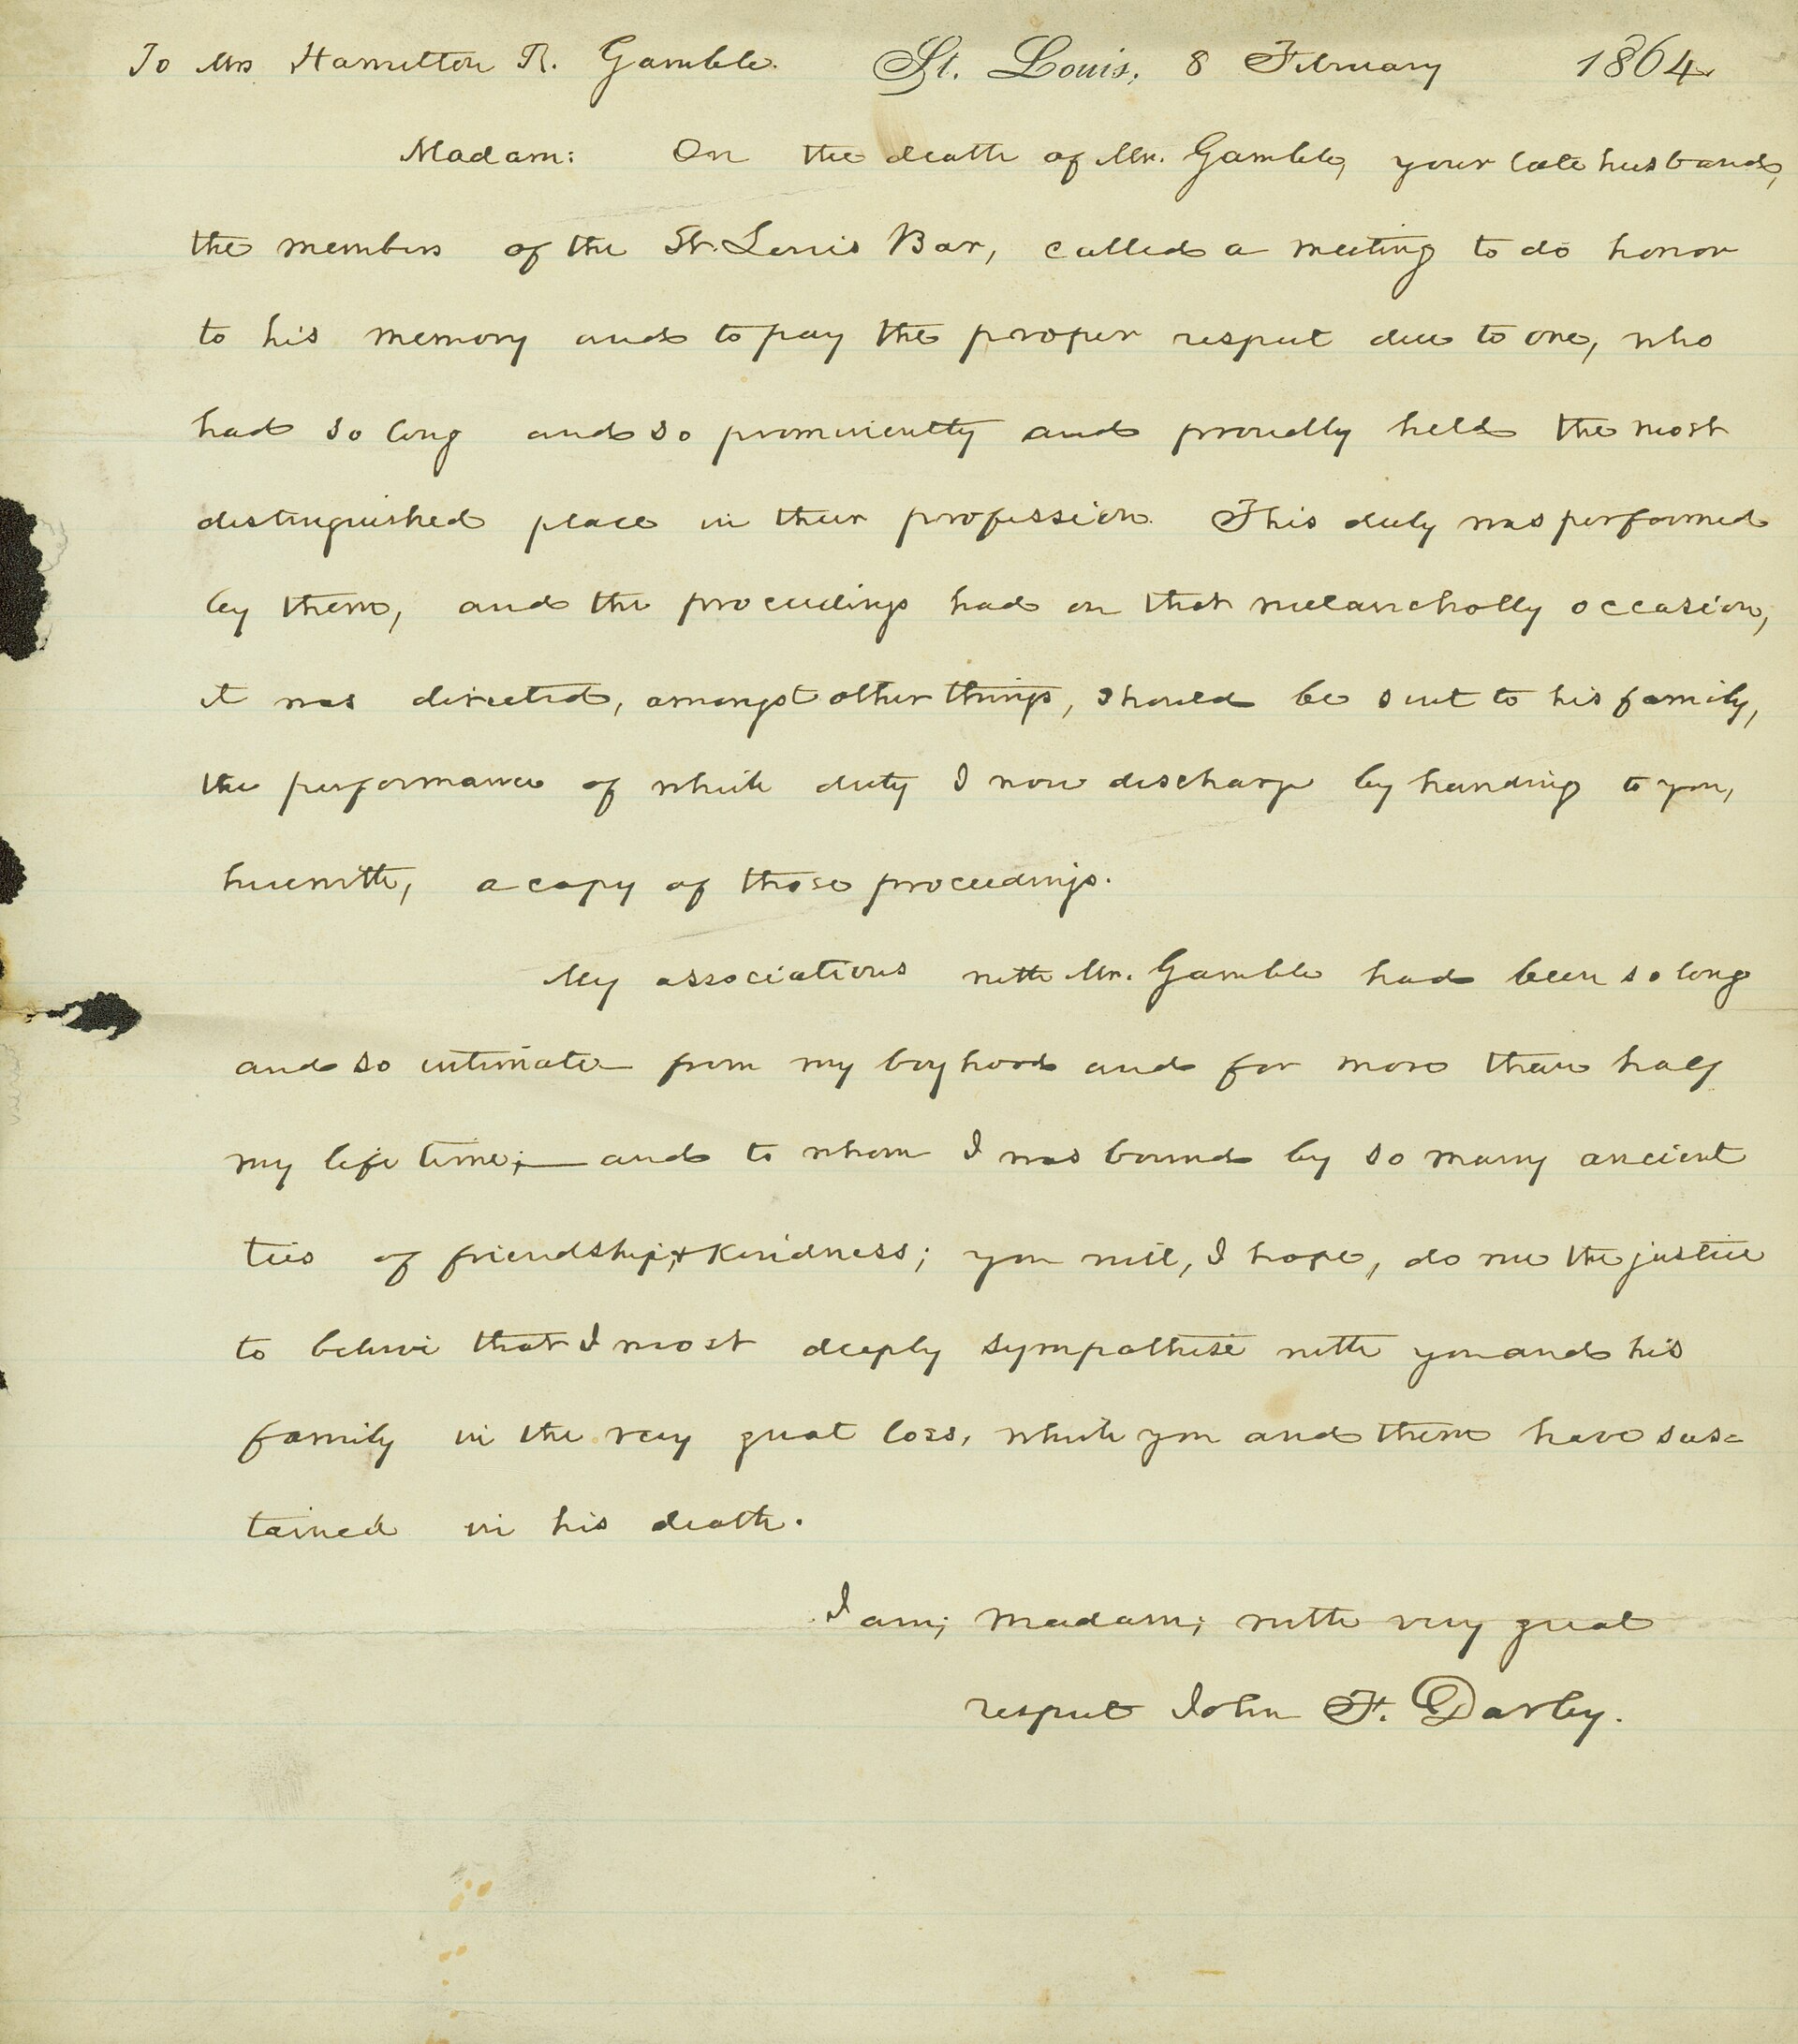 To Mrs Hamilton R. Gamble. St. Louis, 8 February 1864
Madam: On the death of Mr. Gamble, your late husband,
the members of the St. Louis Bar, called a meeting to do honor
to his memory and to pay the proper respect due to one, who
had so long and so prominently and proudly held the most
distinguished place in their profession. This duty was performed
by them, and the proceedings had on that melancholly occasion,
it was directed, amongst other things, should be sent to his family,
the performance of which duty I now discharge by handing to you,
herewith, a copy of those proceedings.
My associations with Mr. Gamble had been so long
and so intimate from my boyhood and for more than half
my life time;—and to whom I was bound by so many ancient
ties of friendship, & kindness; you will, I hope, do me the justice
to believe that I most deeply sympathise with you and his
family in the very great loss, which you and them have sus=
tained in his death.
I am; Madam; with very great
respect John F. Darby.